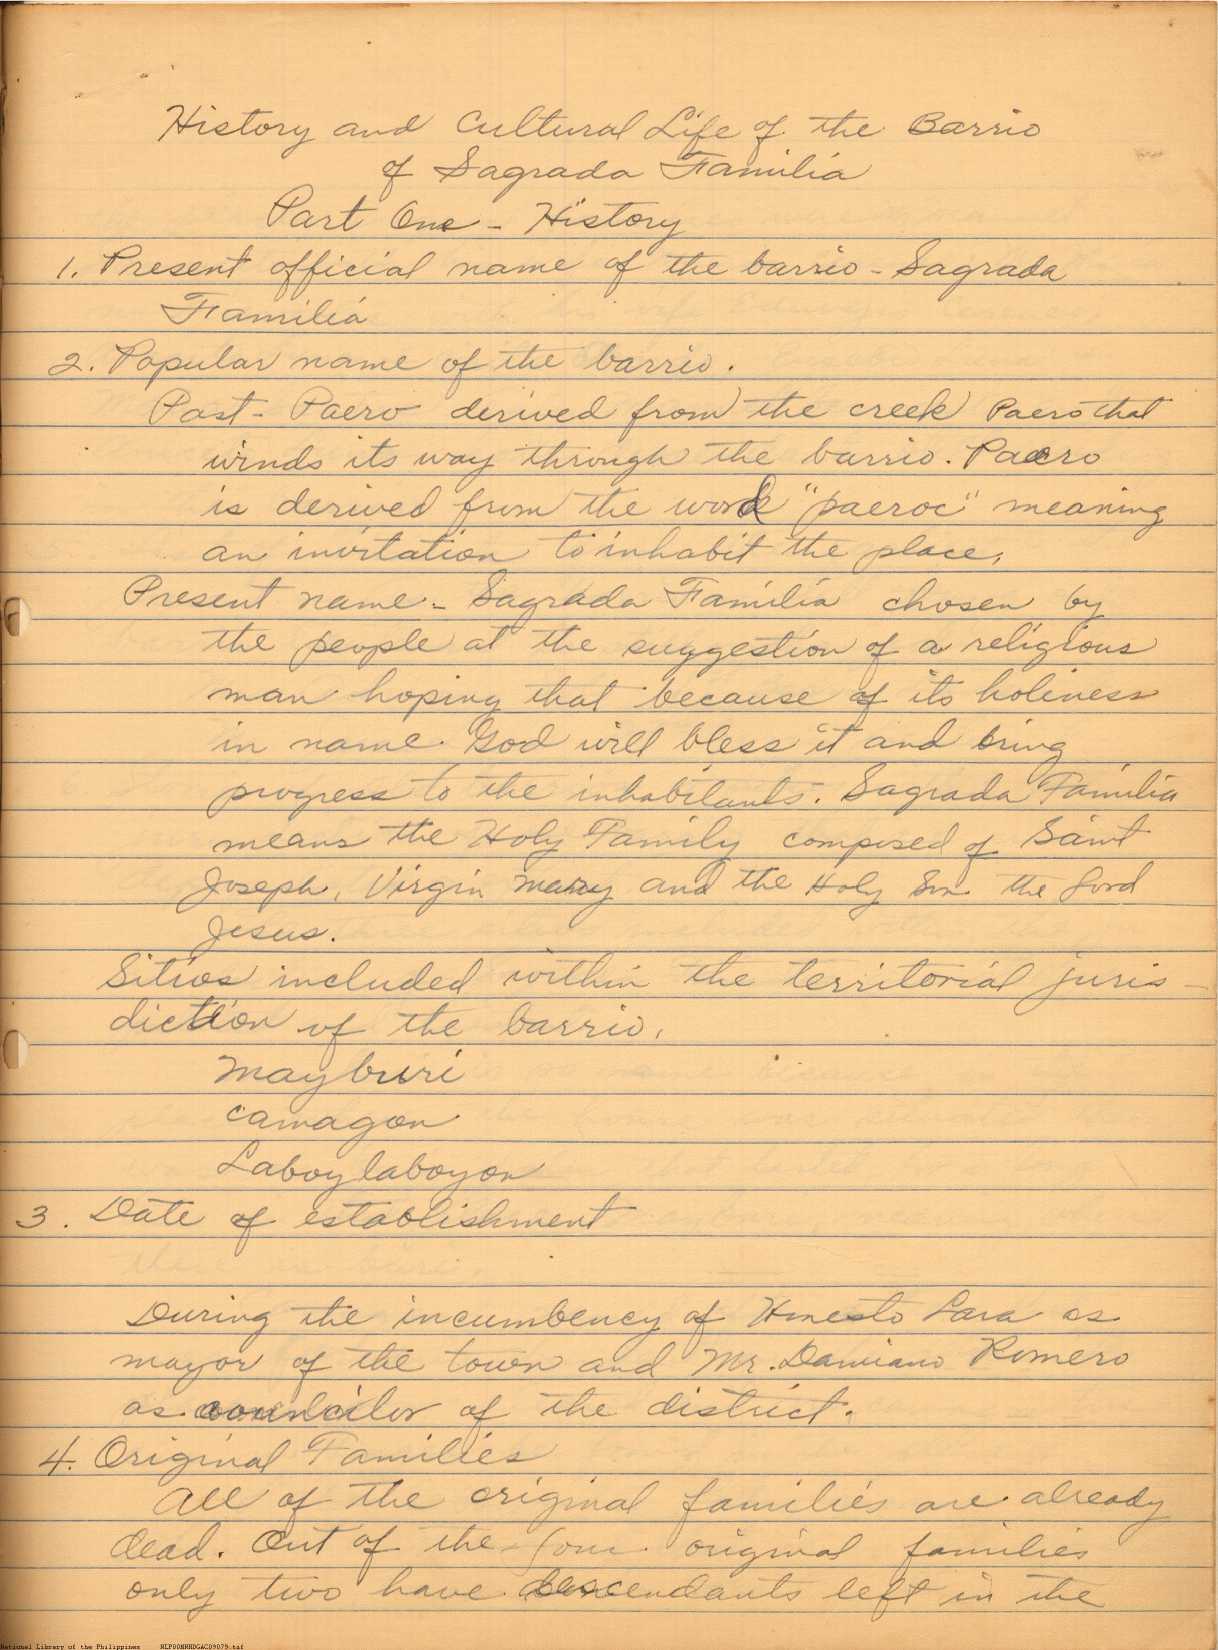 History and Cultural Life of the Barrio
of Sagrada Familia
Part One - History
1. Present official name of the barrio - Sagrada
Familia
2. Popular name of the barrio.
Past - Paero derived from the creek Paero that
winds its way through the barrio. Paero
is derived from the word "paeroc" meaning
an invitation to inhabit the place.
Present name - Sagrada Familia chosen by
the people at the suggestion of a religious
man hoping that because of its holiness
in name God will bless it and bring
progress to the inhabitants. Sagrada Familia
means the Holy Family composed of Saint
Joseph, Virgin Mary and the Holy Son the Lord
Jesus.
Sitios included within the territorial juris-
diction of the barrio.
Mayburi
Camagon
Laboylaboyon
3. Date of establishment
During the incumbency of Lara as
mayor of the town and Mr. Damiano Romero
as councilor of the district.
4. Original Families
All of the original families are already
dead. Out of the four original families
only two have descendants left in the
National Library of the Philippines NLP00MNHDGAC09079.tif